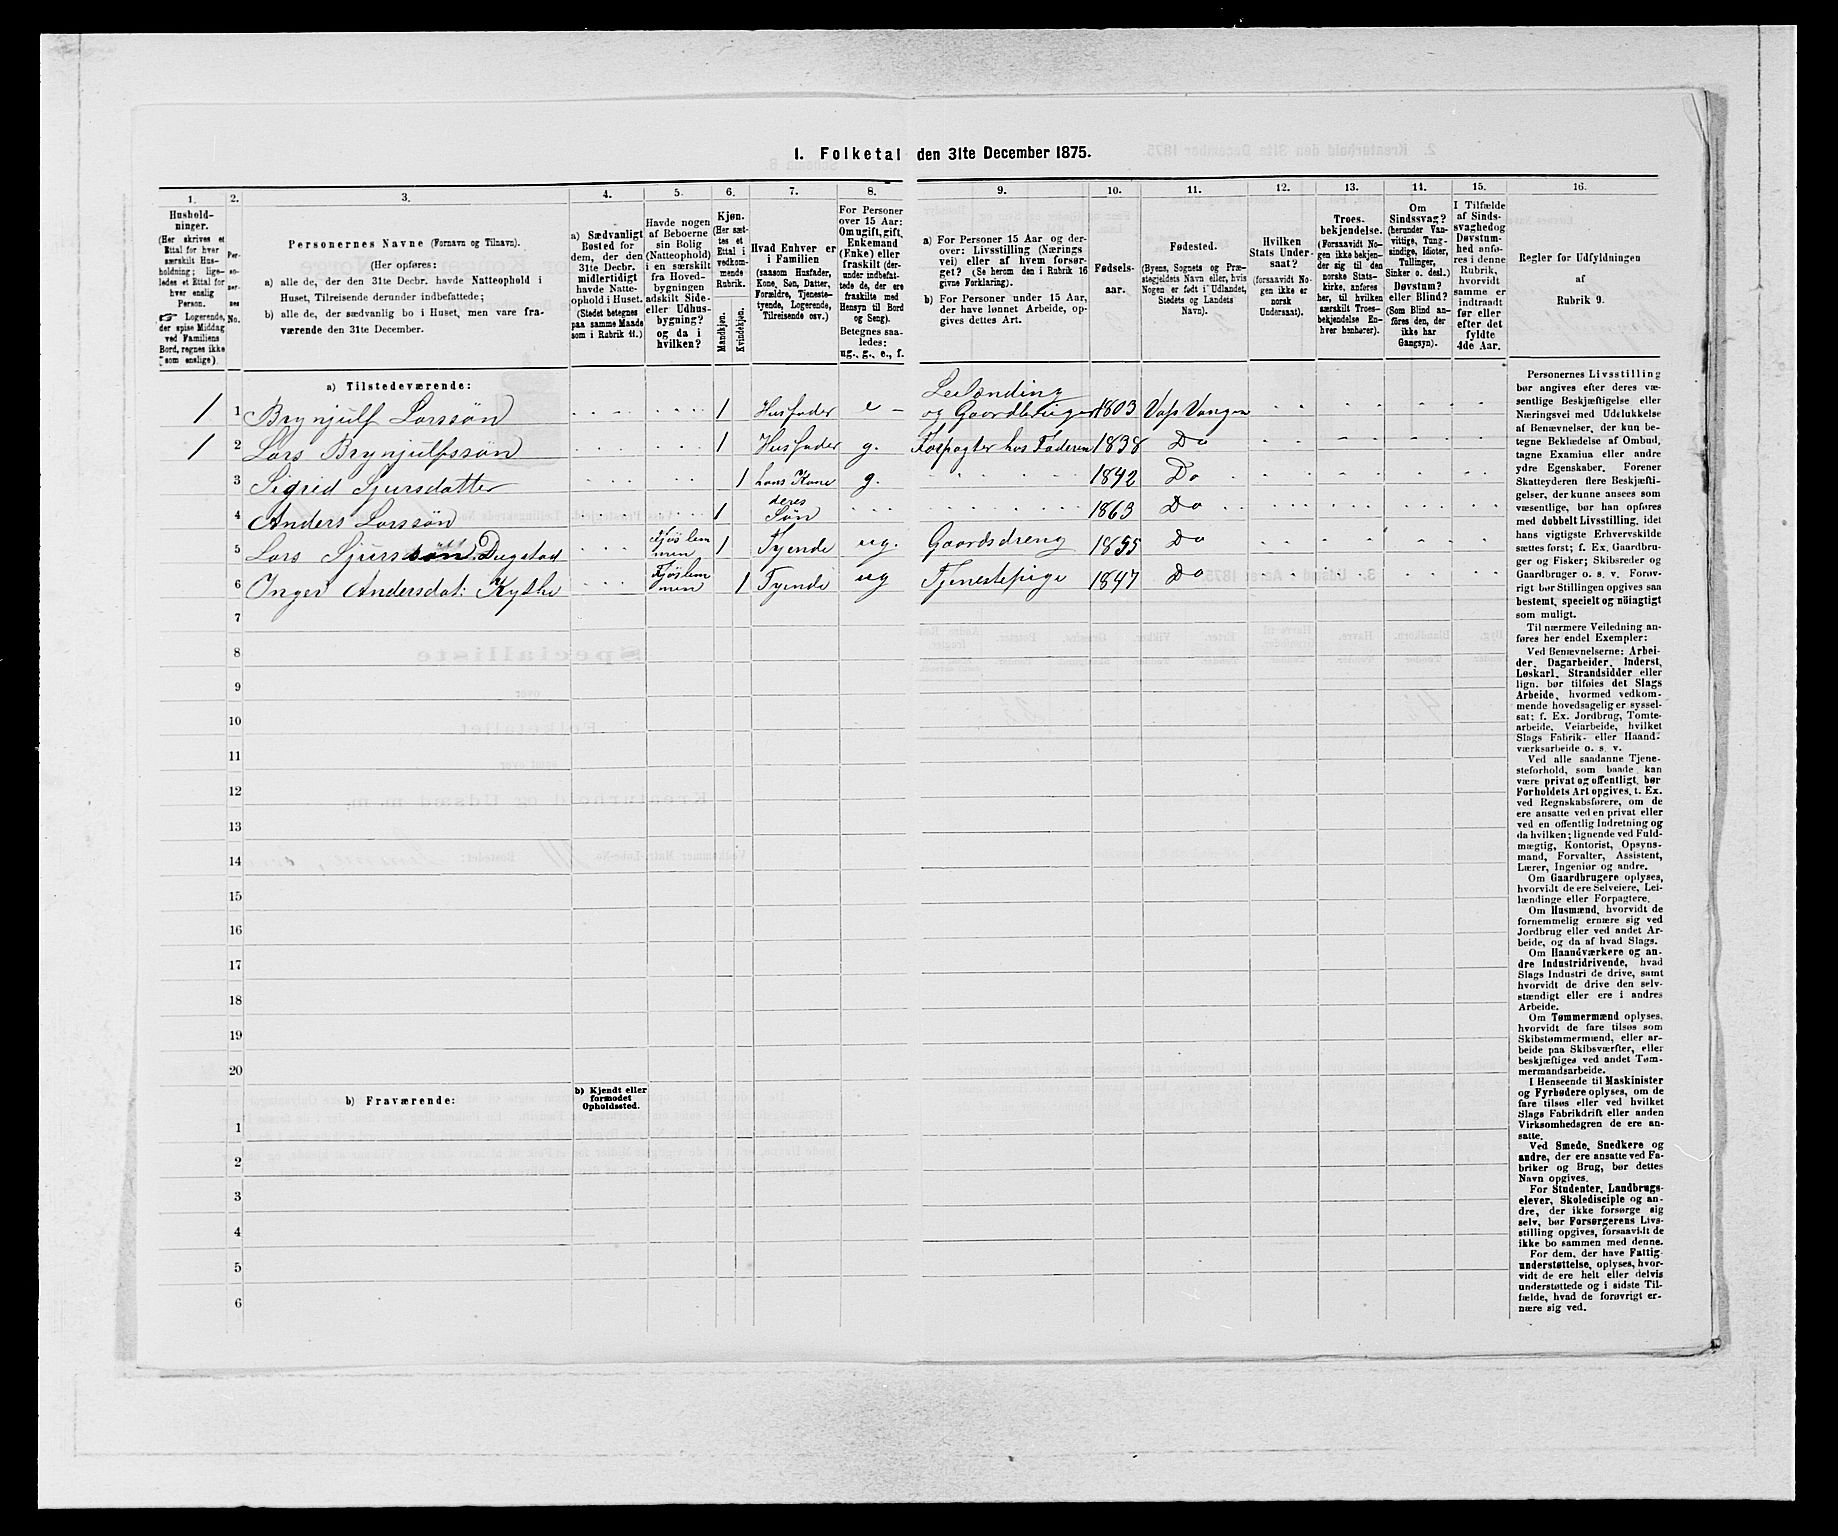 1. Folketal den 31te December 1875.
1.
2.
3.
4.
5.
6.
7.
8.
9.
10.
11.
12.
13.
14.
15.
16.
Husholdninger.
(Her skrives et
Ettal for hver
særskilt Husholdning; ligeledes
et Ettal for
hver enslig
Person.
☞ Logerende,
der spise Middag
ved Familiens
Bord, regnes ikke
som enslige).
Personernes No.
Personernes Navne (Fornavn og Tilnavn).
(Her opføres:
a) alle de, der den 31te Decbr. havde Natteophold i
Huset, Tilreisende derunder indbefattede;
b) alle de, der sædvanlig bo i Huset, men vare fraværende
den 31te December.
a) Sædvanligt
Bosted for
dem, der den
31te Decbr.
midlertidigt
havde Natteophold
i Huset.
(Stedet betegnes
paa samme Maade
som i Rubrik 11.)
Havde nogen
af Beboerne
sin Bolig
(Natteophold)
i en særskilt
fra Hovedbygningen
adskilt Side-
eller Udhusbygning?
og da i
hvilken?
Kjøn.
(Her sættes
et
Ettal i
vedkommende
Rubrik.
Mandkjøn.
Kvindekjøn.
Hvad Enhver er
i Familien
(saasom Husfader,
Kone, Søn, Datter,
Forældre, Tjenestetyende,
Logerende,
Tilreisende osv.)
For Personer
over 15 Aar:
Om ugift, gift,
Enkemand
(Enke) eller
fraskilt (derunder
indbefattede
de, der ere
fraskilte med
Hensyn til Bord
og Seng).
Betegnes saaledes:
ug., g., e., f.
a) For Personer 15 Aar og derover:
Livsstilling (Næringsvei)
eller af hvem forsørget?
(Se herom den i Rubrik 16
givne Forklaring).
b) For Personer under 15 Aar,
der have lønnet Arbeide, opgives
dettes Art.
Fødselsaar.
Fødested.
(Byens, Sognets og Præstegjeldets
Navn eller, hvis
Nogen er født i Udlandet,
Stedets og Landets
Navn).
Hvilken
Stats Undersaat?
(forsaavidt Nogen
ikke er
norsk
Undersaat).
Troesbekjendelse.
(Forsaavidt Nogen
ikke bekjender
sig til den
norske Statskirke,
anføres
her, til hvilken
særskilt Troesbekjendelse
Enhver
henhører).
Om
Sindssvag?
(herunder Vanvittige,
Tungsindige,
Idioter,
Tullinger,
Sinker o. desl.)
Døvstum?
eller Blind?
(Som Blind anføres
den, der
ikke har
Gangsyn).
I Tilfælde
af Sindssvaghed
og
Døvstumhed
anføres
i denne
Rubrik,
hvorvidt
samme er
indtraadt
før eller
efter det
fyldte
4de Aar.
Regler for Udfyldningen
af
Rubrik 9.
a) Tilstedeværende:
1 1 Brynjulf Larssøn 1 Husfader e Leilænding og Gaardbruger 1803 Vols Vangen
1 2 Lars Brynjulfssøn 1 Husfader g. Forpagter hos Faderen 1838 Do
3 Sigrid Sjursdatter 1 hans Kone g. 1842 Do
4 Anders Larssøn 1 deres Søn 1863 Do
5 Lars Sjurssøn Dugstad Fjøslemmen 1 Tyende ug. Gaardsdreng 1855 Do
6 Inger Andersdat: Kythe Fjøslemmen 1 Tyende ug Tjenestepige 1847 Do
7
8
9
10
11
12
13
14
15
16
17
18
19
20
b) Fraværende:
b) Kjendt eller
formodet
Opholdssted.
1
2
3
4
5
6
Personernes Livsstilling
bør angives efter deres væsentlige
Beskjæftigelse eller
Næringsvei med Udelukkelse
af Benævnelser, der kun betegne
Beklædelse af Ombud,
tagne Examina eller andre
ydre Egenskaber. Forener
Skatteyderen flere Beskjæftigelser,
der kunne ansees som
væsentlige, bør han opføres
med dobbelt Livsstilling, idet
hans vigtigste Erhvervskilde
sættes først; f. Ex. Gaardbruger
og Fisker; Skibsreder og
Gaardbruger o. s. v. Forøvrigt
bør Stillingen opgives saa
bestemt, specielt og nøiagtigt
som muligt.
Til nærmere Veiledning anføres
her endel Exempler:
Ved Benævnelserne: Arbeider,
Dagarbeider, Inderst,
Løskarl, Strandsidder eller
lign. bør tilføies det Slags
Arbeide, hvormed vedkommende
hovedsagelig er sysselsat;
f. Ex. Jordbrug, Tomtearbeide,
Veiarbeide, hvilket
Slags Fabrik- eller Haandværksarbeide
o. s. v.
Ved alle saadanne Tjenesteforhold,
som baade kan
være privat og offentligt, bør
Forholdets Art opgives, t. Ex.
ved Regnskabsførere, om de
ere ansatte ved en privat eller
ved en offentlig Indretning og
da hvilken; lignende ved Fuldmægtig,
Kontorist, Opsynsmand,
Forvalter, Assistent,
Lærer, Ingeniør og andre.
Om Gaardbrugere oplyses,
hvorvidt de ere Selveiere, Leilændinge
eller Forpagtere.
Om Husmænd, hvorvidt de
fornemmelig ernære sig ved
Jordbrug eller ved andet Arbeide,
og da af hvad Slags.
Om Haandværkere og andre
Industridrivende, hvad
Slags Industri de drive, samt
hvorvidt de drive den selvstændigt
eller ere i andres
Arbeide.
Om Tømmermænd oplyses,
hvorvidt de fare tilsøs som
Skibstømmermænd, eller arbeide
paa Skibsværfter, eller
beskjæftiges ved andet Tømmermandsarbeide.
I Henseende til Maskinister
og Fyrbødere oplyses, om de
fare tilsøs eller ved hvilket
Slags Fabrikdrift eller anden
Virksomhedsgren de ere ansatte.
Ved Smede, Snedkere og
andre, der ere ansatte ved Fabriker
og Brug, bør dettes
Navn opgives.
For Studenter, Landbrugselever,
Skoledisciple og andre,
der ikke forsørge sig
selv, bør Forsørgerens Livsstilling
opgives, forsaavidt de
ikke bo sammen med denne.
For dem, der have Fattigunderstøttelse,
oplyses, hvorvidt
de ere helt eller delvis
understøttede og i sidste Tilfælde,
hvad de forøvrigt ernære
sig ved.